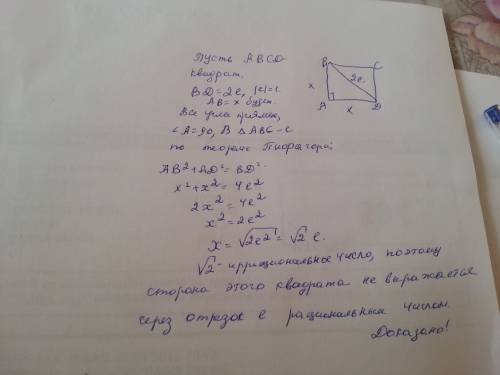 Пусть ABCD
квадрат.
BD=2e, |e|=1.
AB=x будет.
Все углы прямые,
∠A=90, В △ABC-е
по теореме Пифагора:
AB²+AD²=BD².
x²+x²=4e²
2x²=4e²
x²=2e²
x=√2e²=√2 e.
√2-иррациональное число, поэтому
сторона этого квадрата не выражается
через отрезок e рациональным числом.
Доказано!
B C
2e
x
A D
x